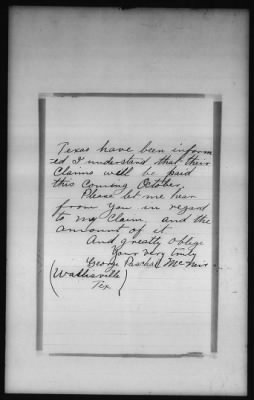 Texas have been inform
ed I understand that their
Claims will be paid
this Coming October,
Please let me hear
from you in regard
to my Claim, and the
amount of it
And greatly oblige
Your very truly
George Paschal McNair
(Wallisville
Tex)